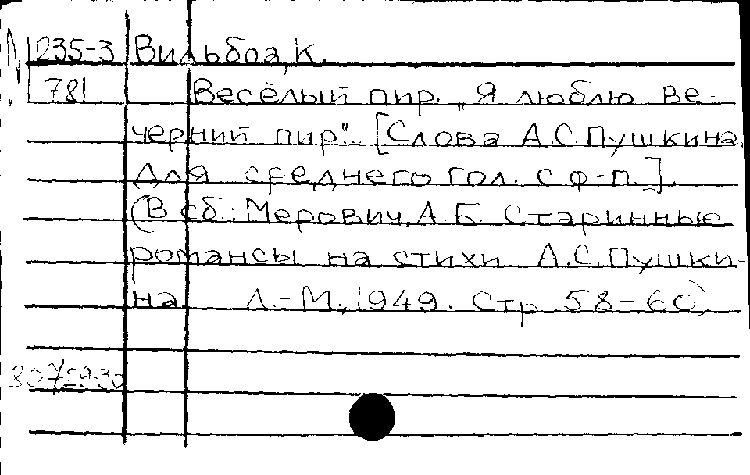 N 235-3 Вильбоа, К.
781 Весёлый пир. "Я люблю ве-
черний пир". [Слова А.С.Пушкина.
Для среднего гол. с ф-п.].
(В сб.: Мерович, А.Б. Старинные
романсы на стихи А.С.Пушки-
на. Л.-М., 1949. Стр. 58-60)